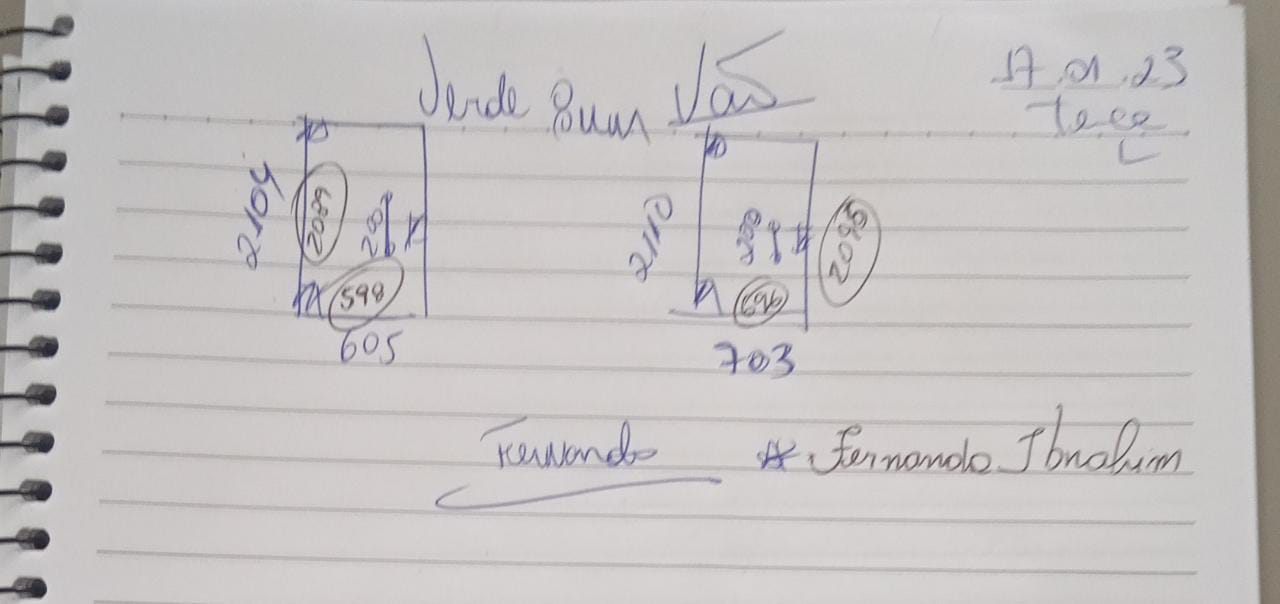 Verde 8mm Vão
17.01.23
Tece
L
2104
2089
200
598
605
2110
200
2095
696
703
Fernando
Fernando Ibrahim